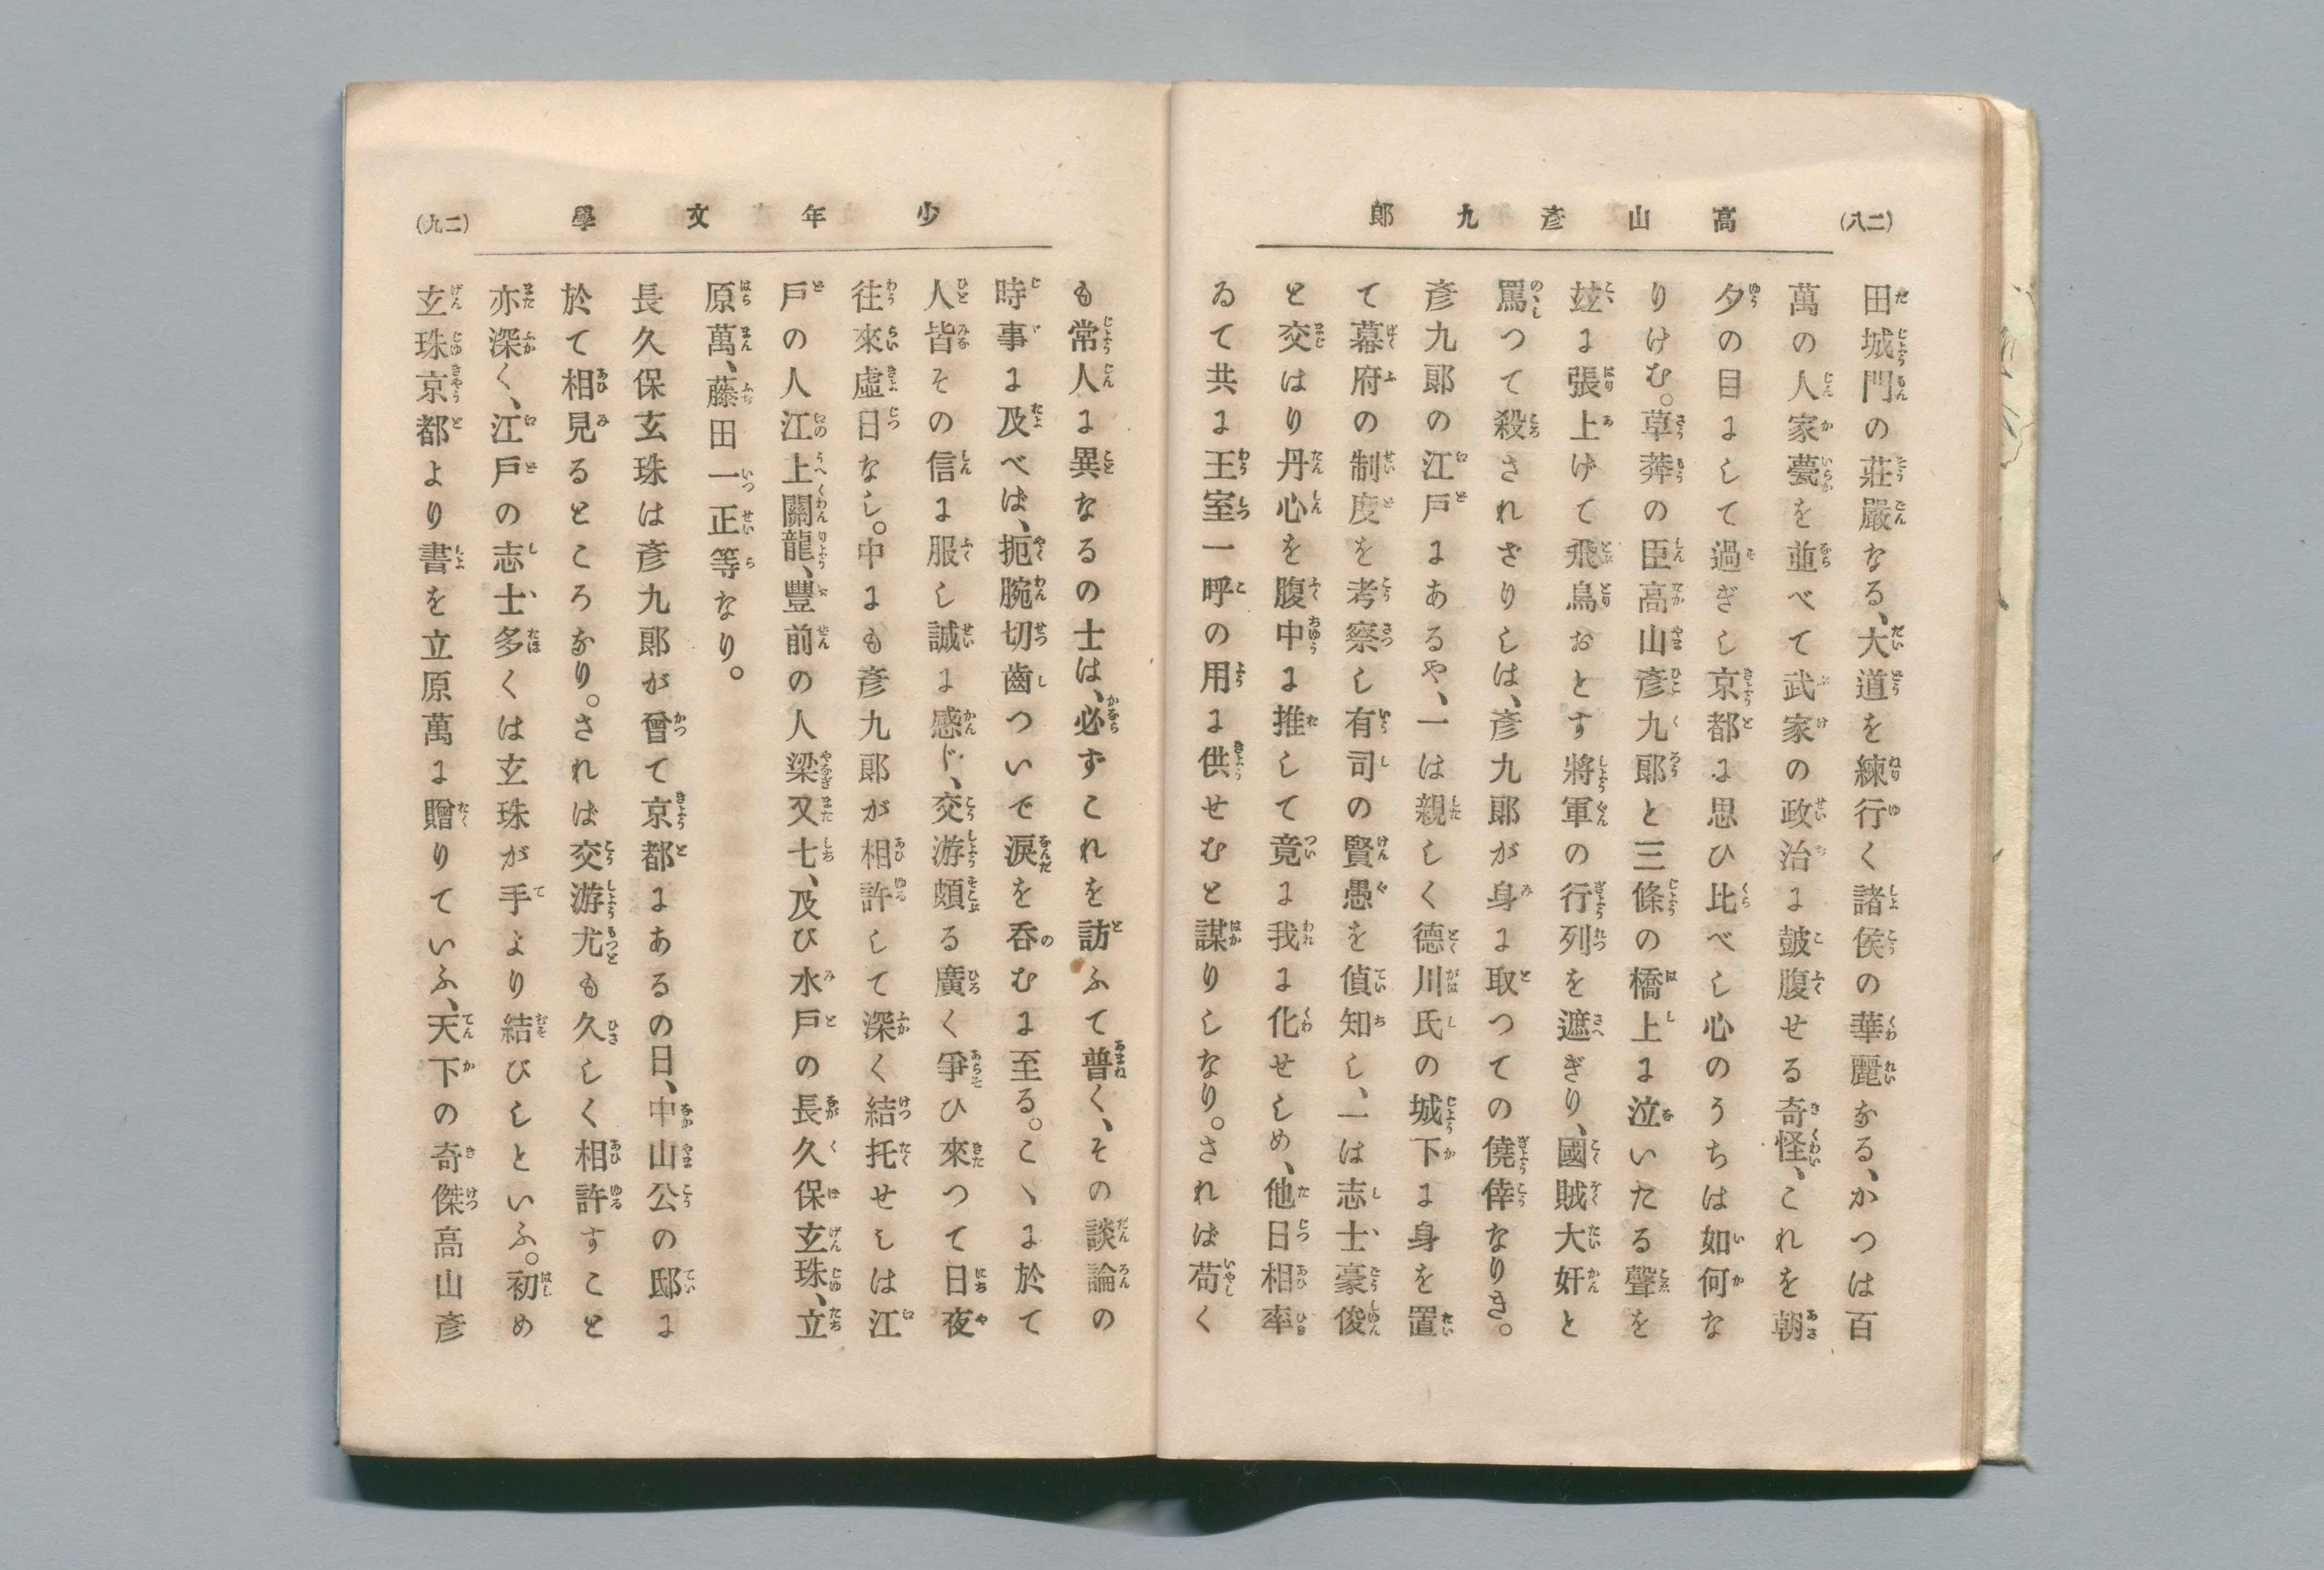 (二八)
高山彥九郞
田城門の莊嚴なる、大道を練行く諸侯の華麗なる、かつは百
萬の人家甍を並べて武家の政治に皷腹せる奇怪、これを朝
夕の目にして過ぎし京都に思ひ比べし心のうちは如何な
りけむ。草莽の臣高山彥九郞と三條の橋上に泣いたる聲を
玆に張上げて飛鳥おとす將軍の行列を遮ぎり、國賊大奸と
罵つて殺されざりしは、彥九郞が身に取つての僥倖なりき。
彥九郞の江戸にあるや、一は親しく德川氏の城下に身を置
て幕府の制度を考察し有司の賢愚を偵知し、一は志士豪俊
と交はり丹心を腹中に推して竟に我に化せしめ、他日相率
ゐて共に王室一呼の用に供せむと謀りしなり。されば苟く
少年文學
(二九)
も常人に異なるの士は、必ずこれを訪ふて普く、その談論の
時事に及べば、扼腕切齒ついで淚を呑むに至る。こゝに於て
人皆その信に服し誠に感じ、交游頗る廣く爭ひ來つて日夜
往來虛日なし。中にも彥九郞が相許して深く結托せしは江
戸の人江上關龍、豐前の人梁又七、及び水戸の長久保玄珠、立
原萬、藤田一正等なり。
長久保玄珠は彥九郞が曾て京都にあるの日、中山公の邸に
於て相見るところなり。されば交游尤も久しく相許すこと
亦深く、江戸の志士多くは玄珠が手より結びしといふ。初め
玄珠京都より書を立原萬に贈りていふ、天下の奇傑高山彥